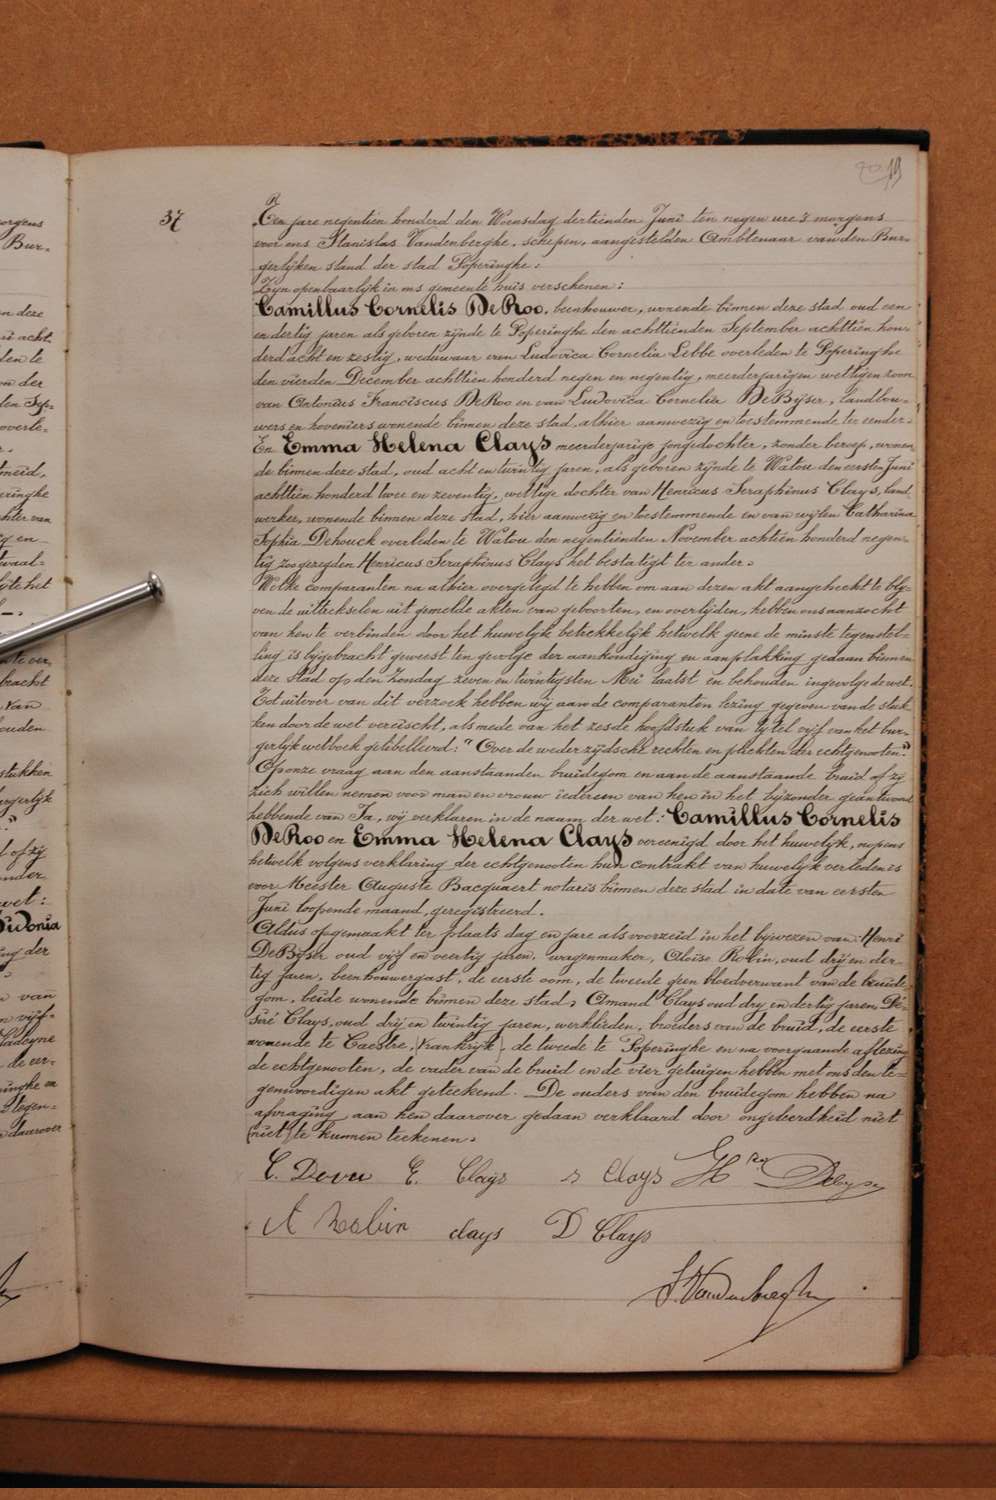 19
37
Een jare negentien honderd den Woensdag dertienden Juni ten negen ure 's morgens
voor ons Stanislas Vandenberghe, schepen, aangestelden Ambtenaar van den Bur-
gerlijken stand der stad Poperinghe:
Zijn openbaarlijk in ons gemeente huis verschenen:
Camillus Cornelis De Roo, beenhouwer, wonende binnen deze stad oud een
en dertig jaren als geboren zijnde te Poperinghe den achttienden September achttien hon-
derd acht en zestig, weduwaar van Ludovica Cornelia Lebbe overleden te Poperinghe
den vierden December achttien honderd negen en negentig, meerderjarigen wettigen zoon
van Antonius Franciscus De Roo en van Ludovica Cornelia De Byser, landbou-
wers en hoveniers wonende binnen deze stad, alhier aanwezig en toestemmende ter eender.
En Emma Helena Clays meerderjarige jongedochter, zonder beroep, wonen-
de binnen deze stad, oud acht en twintig jaren, als geboren zijnde te Watou den eersten Juni
achttien honderd twee en zeventig, wettige dochter van Henricus Seraphinus Clays, land-
werker, wonende binnen deze stad, hier aanwezig en toestemmende en van wijlen Catharina
Sophia Dehouck overleden te Watou den negentienden November achtien honderd negen-
tig zoo gezeyden Henricus Seraphinus Clays het bestatigt ter ander.
Welke comparanten na alhier overgelegd te hebben om aan dezen akt aangehecht te bly-
ven de uittrekselen uit gemelde akten van geboorten, en overlijden, hebben ons aanzocht
van hen te verbinden door het huwelyk betrekkelijk hetwelk geene de minste tegenstel-
ling is bijgebracht geweest ten gevolge der aankondiging en aanplakking gedaan binnen
deze stad op den Zondag zeven en twintigsten Mei laatst en behouden ingevolge de wet.
Tot uitvoer van dit verzoek hebben wij aan de comparanten lezing gegeven van de stuk-
ken door de wet vereischt, als mede van het zesde hoofdstuk van tytel vijf van het bur-
gerlyk wetboek gelibelleerd: "Over de wederzydsche rechten en plichten der echtgenooten."
Op onze vraag aan den aanstaanden bruidegom en aan de aanstaande bruid of zy
zich willen nemen voor man en vrouw iedereen van hen in het bijzonder geantwoord
hebbende van Ja, wij verklaren in de naam der wet: Camillus Cornelis
De Roo en Emma Helena Clays vereenigd door het huwelyk, nopens
hetwelk volgens verklaring der echtgenooten hun contrakt van huwelijk verleden is
voor Meester Auguste Bacquaert notaris binnen deze stad in date van eersten
Juni loopende maand, geregistreerd.
Aldus opgemaakt ter plaats dag en jare als voorzeid in het bijwezen van Henri
De Byser oud vijf en veertig jaren, wagenmaker, Aloïse Robin, oud drij en der-
tig jaren, beenhouwergast, de eerste oom, de tweede geen bloedverwant van de bruide-
gom, beide wonende binnen deze stad, Amand Clays oud dry en dertig jaren, Dé-
siré Clays, oud drij en twintig jaren, werklieden, broeders van de bruid, de eerste
wonende te Caestre, (Frankrijk), de tweede te Poperinghe en na voorgaande aflezing
de echtgenooten, de vader van de bruid en de vier getuigen hebben met ons den te-
genwoordigen akt geteekend. De ouders van den bruidegom hebben na
afvraging aan hen daarover gedaan verklaard door ongeleerdheid niet
(niet) te kunnen teekenen.
E. Clays Clays
clays D Clays
S. Vandenberghe